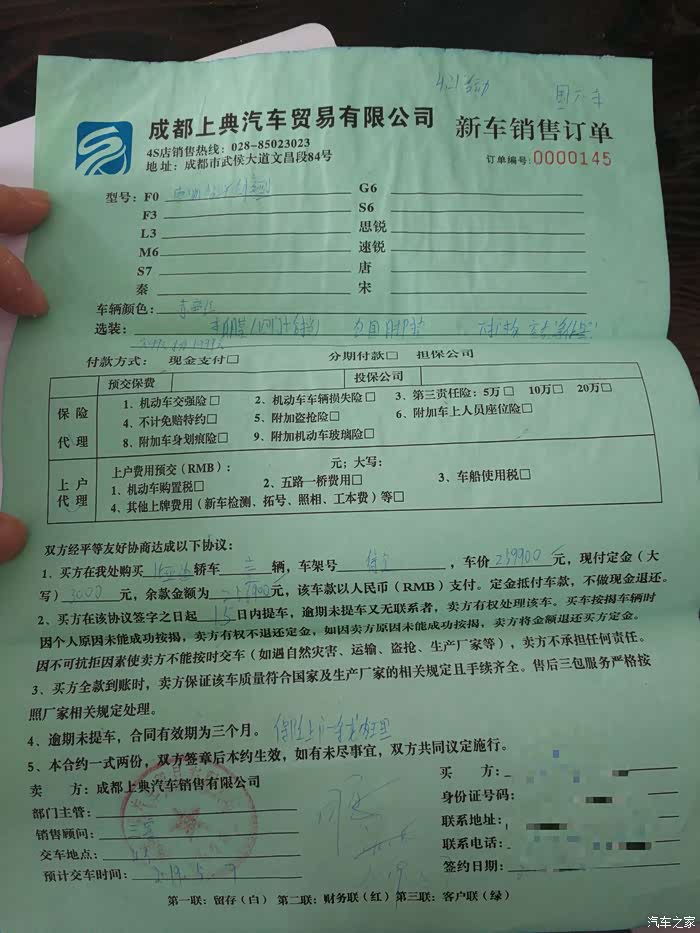 成都上典汽车贸易有限公司 新车销售订单
4S店销售热线：028-85023023
地 址：成都市武侯大道文昌段84号 订单编号：0000145
型号：F0 G6
F3 S6
L3 思锐
M6 速锐
S7 唐
秦 宋
车辆颜色：
选装：
付款方式： 现金支付□ 分期付款□ 担保公司
保险代理 预交保费 投保公司
1、机动车交强险□ 2、机动车车辆损失险□ 3、第三责任险：5万□ 10万□ 20万□
4、不计免赔特约□ 5、附加盗抢险□ 6、附加车上人员座位险□
8、附加车身划痕险□ 9、附加机动车玻璃险□
上户代理 上户费用预交（RMB）： 元；大写：
1、机动车购置税□ 2、五路一桥费用□ 3、车船使用税□
4、其他上牌费用（新车检测、拓号、照相、工本费）等□
双方经平等友好协商达成以下协议：
1、买方在我处购买 比亚迪 轿车 辆，车架号 ，车价 259900 元，现付定金（大
写） 3000 元，余款金额为 元，该车款以人民币（RMB）支付。定金抵付车款，不做现金退还。
2、买方在该协议签字之日起 15 日内提车，逾期未提车又无联系者，卖方有权处理该车。买车按揭车辆时
因个人原因未能成功按揭，卖方有权不退还定金，如因卖方原因未能成功按揭，卖方将金额退还买方定金。
因不可抗拒因素使卖方不能按时交车（如遇自然灾害、运输、盗抢、生产厂家等），卖方不承担任何责任。
3、买方全款到账时，卖方保证该车质量符合国家及生产厂家的相关规定且手续齐全。售后三包服务严格按
照厂家相关规定处理。
4、逾期未提车，合同有效期为三个月。
5、本合约一式两份，双方签章后本约生效，如有未尽事宜，双方共同议定施行。
卖 方：成都上典汽车销售有限公司 买 方：
部门主管： 身份证号码：
销售顾问： 联系地址：
交车地点： 联系电话：
预计交车时间： 签约日期：
第一联：留存（白） 第二联：财务联（红） 第三联：客户联（绿）
汽车之家